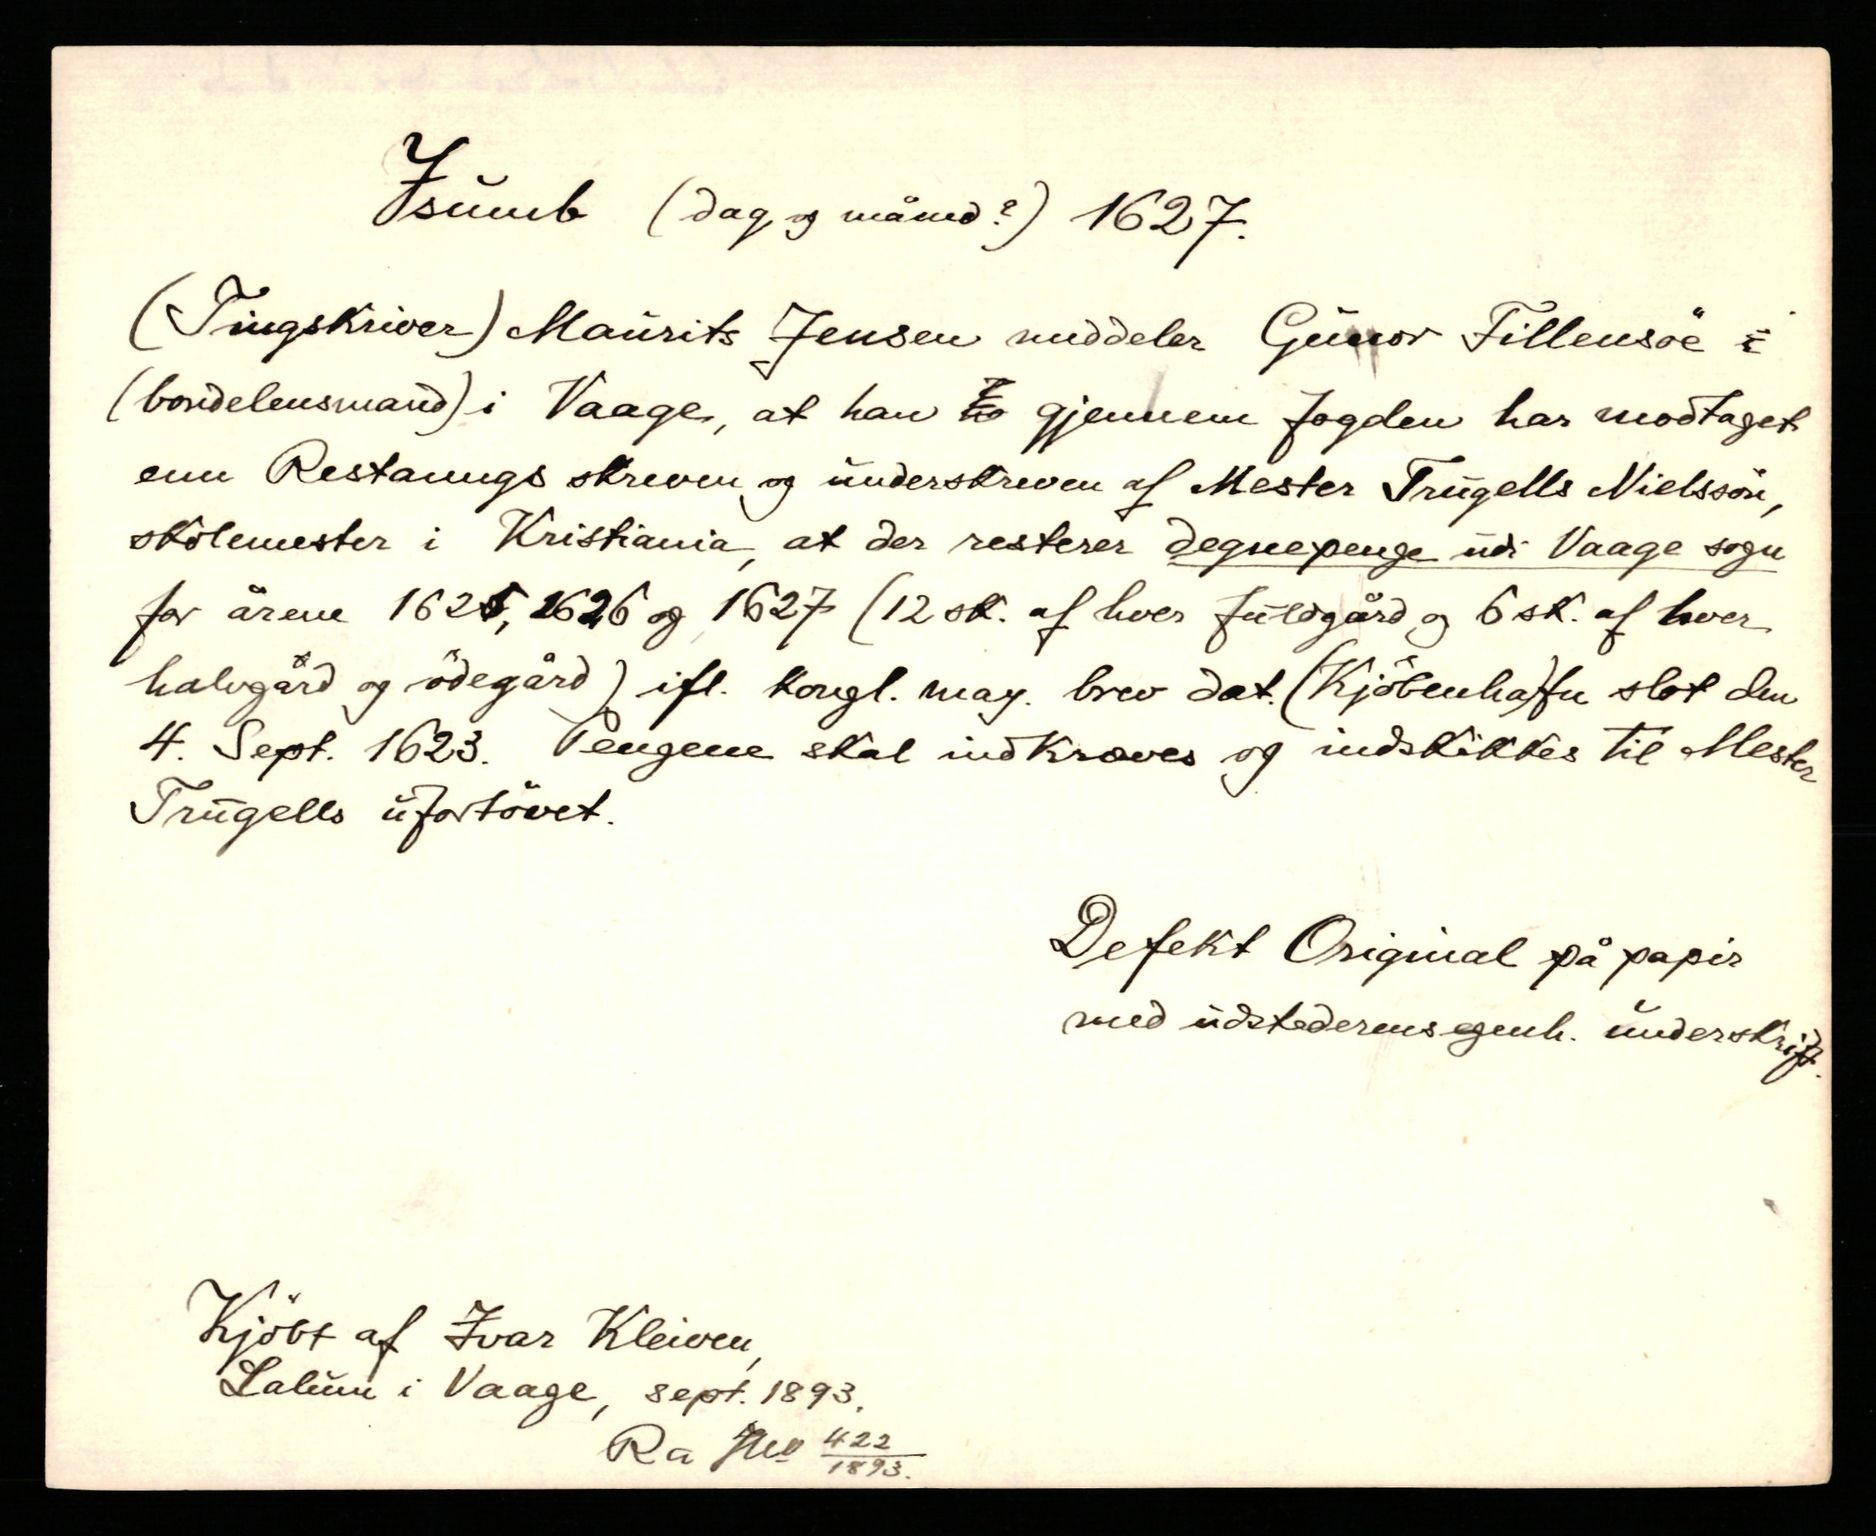 Isumb (dag og måned?) 1627.
(Tingskriver) Maurits Jensen meddeler Gunor Tillensöe
(bondelensmand) i Vaage, at han gjennem fogden har modtaget
enn Restanngs skreven og underskreven af Mester Trugells Nielssön,
skolemester i Kristiania, at der resterer degnepenge udi Vaage sogn
for årene 1625, 1626 og 1627 (12 sk. af hver fuldgård og 6 sk. af hver
halvgård og ödegård) ifl. kongl. may. brev dat. (Kjöbenha)fn slot den
4. Sept. 1623. Pengene skal indkræves og indskikkes til Mester
Trugells ufortövet.
Defekt Original på papir
med udstederens egenh. underskrift.
Kjöbt af Ivar Kleiven,
Lalum i Vaage, sept. 1893.
Ra JNo 422/1893.